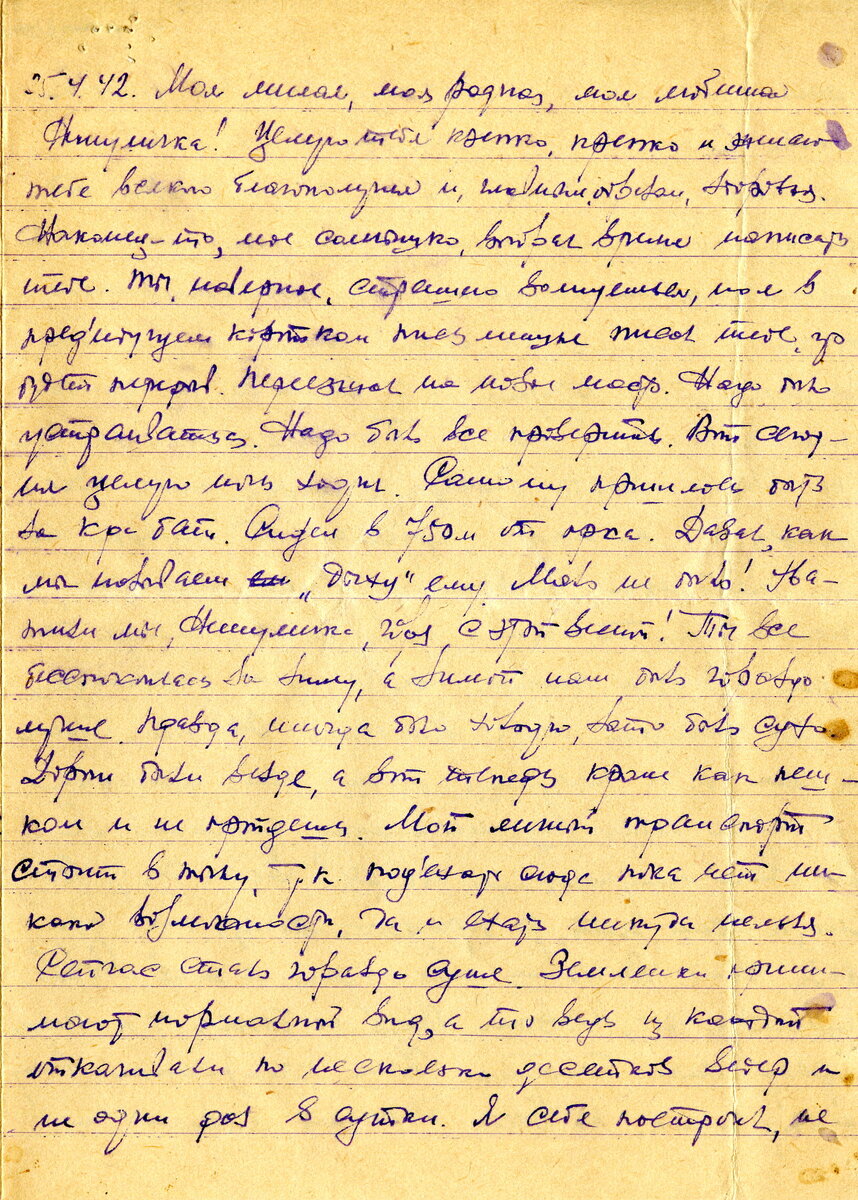 25.4.42. Моя милая, моя родная, моя любимая
Нинуличка! Целую тебя крепко, крепко и желаю
тебе всякого благополучия и, главным образом, здоровья.
Наконец-то, мое солнышко, выбрал время написать
тебе. Ты, наверное, страшно волнуешься, хотя в
предыдущем коротком письмишке писал тебе, что
будет перерыв. Переезжал на новое место. Надо было
устраиваться. Надо было все проверить. Вот сегод-
ня целую ночь ходил. Самому пришлось быть
за к-ра бат. Сидел в 750м от врага. Давал, как
мы называем „дрозду" ему. Мало не было! Ува-
жили мы, Нинуличка, с этой весной! Ты все
беспокоилась за зиму, а зимой нам было гораздо
лучше. Правда, иногда было холодно, зато было сухо.
Дороги были везде, а вот теперь кроме как пеш-
ком и не пройдешь. Мой личный транспорт
стоит в тылу, т.к. подъехать сюда пока нет ни-
какой возможности, да и ехать никуда нельзя.
Сейчас стало гораздо суше. Землянки прини-
мают нормальный вид, а то ведь из каждой
откачивали по несколько десятков ведер и
не один раз в сутки. Я себе построил, не